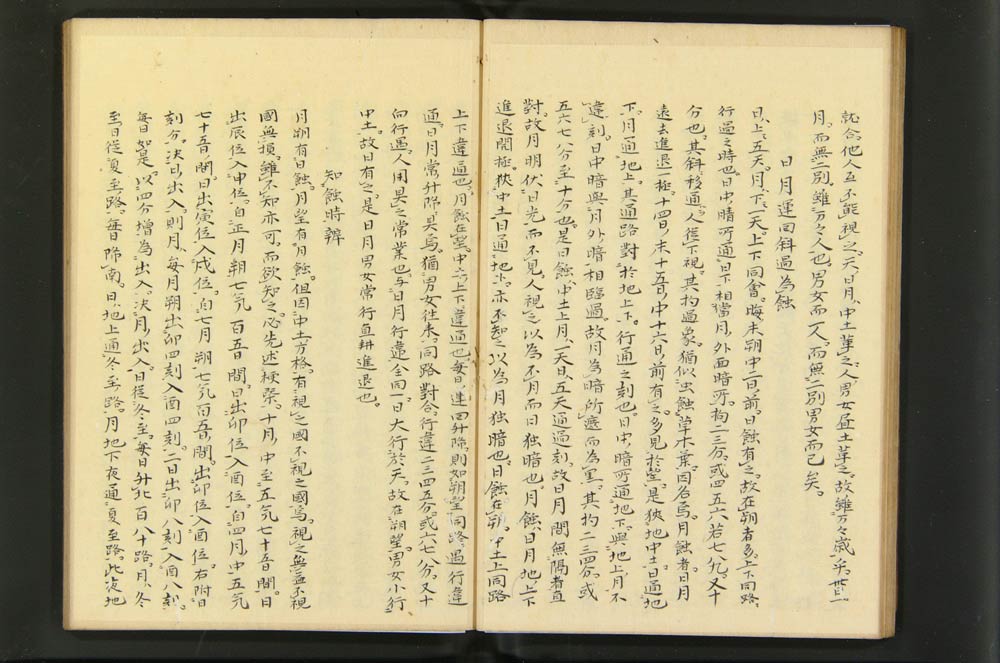 就念他人互不能視之天日月中土革之人男女晝土革之故雖万々歳乎世一
月而無二別雖万々人也男女而一人而無二別男女而已矣
日月運回斜過為蝕
日上五天月下一天上下同會晦末朔中二日前日蝕有之故在朔者多上下同路
行過之時也日中晴所通日下相當月外面暗所拘二三分或四五六若七八九又十
分也其斜移通人從下視其拘過象猶似虫蝕草木葉因名爲月蝕者日月
遠去進退一極十四日末十五日中十六日前有之多見於望是狹地中土日通地
下月通地上其通路對於地上下行通之刻也日中暗所通地下與地上月不
違刻日中暗與月外暗相臨過故月為暗所遮而為黒其拘二三四分或
五六七八分至十分也是日蝕中土上月一天日五天通過刻故日月間無隔者直
對故月明伏日光而不見人視之以為不月而日独暗也月蝕日月地上下
進退閲極狹中土日通地少亦不知之以為月独暗也日蝕在朔中土上同路
上下違通也月蝕在望中六上下違通也毎日運回升降則如朔望同路過行違
通日月常升降具爲猶男女往来同路對合行違二三四五分或六七八分又十
向行遇人用具之常業也与日月行違全同一日大行於天故在朔望男女小行
中土故日有之是日月男女常行直耕進退也
知蝕時辨
月朔有日蝕月望有月蝕但因中土方格有視之國不視之國爲視之無益不視
國無損雖不知亦可而欲知之必先述梗槩十月中至五気七十五日間日
出辰位入申位自正月朔七気百五日間日出卯位入酉位自四月中五気
七十五日間日出寅位入戌位自七月朔七気百五日間出卯位入酉位右附日
刻分決日出入則月毎月朔出卯四刻入酉四刻二日出卯八刻入酉八刻
毎日如是以四分増為出入決月出入日従冬至毎日升北百八十路月冬
至日從夏至路毎日降南日地上通冬至路月地下夜通夏至路此夜地